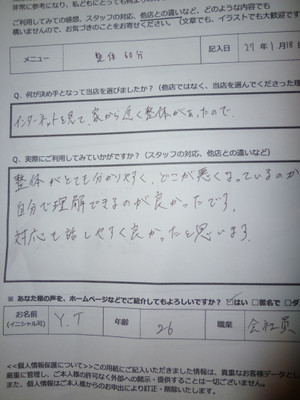 非常に参考になり、私どもにとっても何より
ご利用してみての感想、スタッフの対応、他店との違いなど、どのような内容でも
構いませんので、お気づきのことをお寄せください。（文章でも、イラストでも大歓迎です
メニュー 整体 60分 記入日 27年1月18日
Q．何が決め手となって当店を選びましたか？（他店ではなく、当店を選んでくださった理
インターネットを見て、家から近く整体があったので
Q．実際にご利用してみていかがですか？（スタッフの対応、他店との違いなど）
整体がとても分かりやすく、どこが悪くなっているのか
自分で理解できるのが良かったです。
対応も話しやすく良かったと思います。
※ あなた様の声を、ホームページなどでご紹介してもよろしいですか？ ☑はい □匿名で □ダ
お名前 （イニシャル可） Y.T 年齢 26 職業 会社員
<<個人情報保護について>>この用紙にご記入いただきました情報は、貴重なお客様データとし
厳重に管理し、ご本人様の許可なく外部への開示・提供することは一切ございません。
また、個人情報はご本人様からのお申出により訂正・削除いたします。